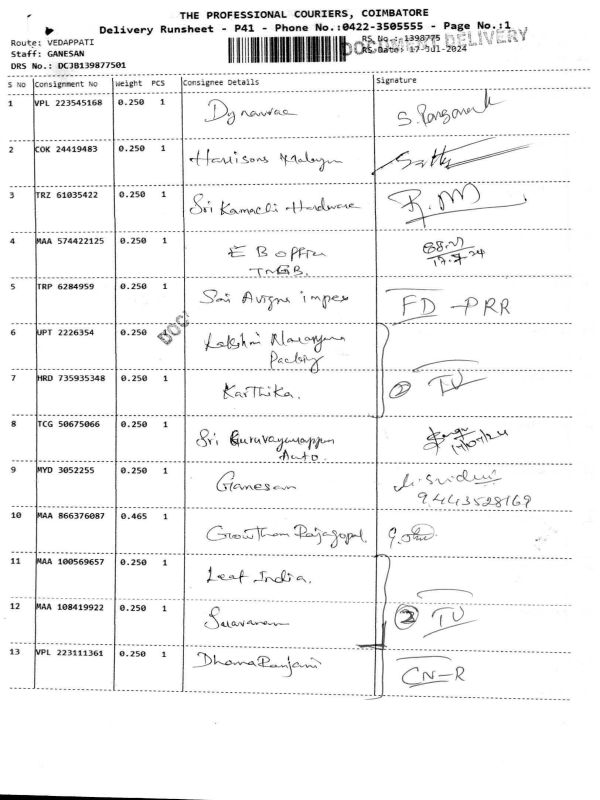 THE PROFESSIONAL COURIERS, COIMBATORE
Delivery Runsheet - P41 - Phone No.:0422-3505555 - Page No.:1
Route: VEDAPPATI
RS No.: 1398775
DOCUMENT DELIVERY
Staff: GANESAN
RS Date: 17-Jul-2024
DRS No.: DCJB139877501
S No Consignment No Weight PCS Consignee Details Signature
1 VPL 223545168 0.250 1
2 COK 24419483 0.250 1 Harrisons Malayam
3 TRZ 61035422 0.250 1 Sri Kamachi Hardware R.M
4 MAA 574422125 0.250 1 E B office
TNEB.
17.7.24
5 TRP 6284959 0.250 1 Sai Avigna impex FD - PRR
DOC
6 UPT 2226354 0.250 1 Lakshmi Narayana
Packing
7 HRD 735935348 0.250 1 Karthika. 2
8 TCG 50675066 0.250 1 Sri Guruvayurappan
Auto.
17/07/24
9 MYD 3052255 0.250 1 Ganesan
9443528169
10 MAA 866376087 0.465 1 Gowtham Rajagopal
11 MAA 100569657 0.250 1 Leaf India.
12 MAA 108419922 0.250 1 Saravanan 2
13 VPL 223111361 0.250 1 DhanaRanjani CN-R